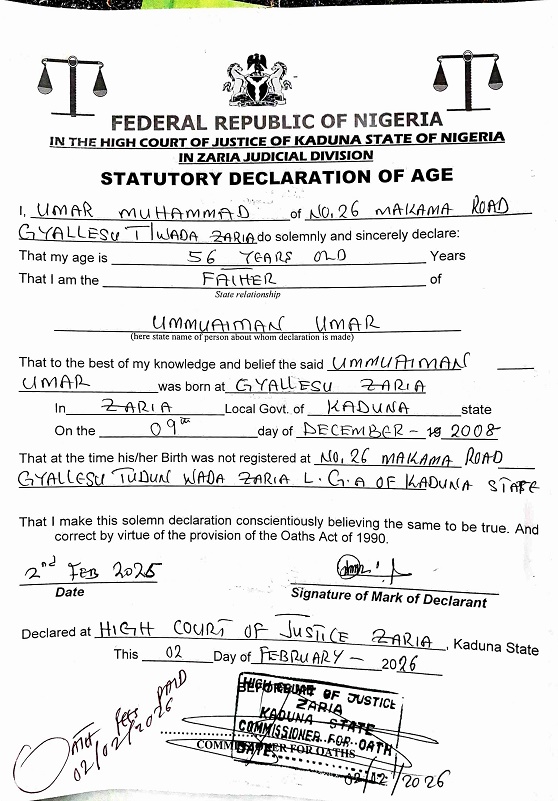 FEDERAL REPUBLIC OF NIGERIA
IN THE HIGH COURT OF JUSTICE OF KADUNA STATE OF NIGERIA
IN ZARIA JUDICIAL DIVISION
STATUTORY DECLARATION OF AGE
I, UMAR MUHAMMAD of NO. 26 MAKAMA ROAD
GYALLESU T/WADA ZARIA do solemnly and sincerely declare:
That my age is 56 YEARS OLD Years
That I am the FATHER of
State relationship
UMMUAIMAN UMAR
(here state name of person about whom declaration is made)
That to the best of my knowledge and belief the said UMMUAIMAN
UMAR was born at GYALLESU ZARIA
In ZARIA Local Govt. of KADUNA state
On the 09th day of DECEMBER - 19 2008
That at the time his/her Birth was not registered at NO. 26 MAKAMA ROAD
GYALLESU TUDUN WADA ZARIA L.G.A OF KADUNA STATE
That I make this solemn declaration conscientiously believing the same to be true. And
correct by virtue of the provision of the Oaths Act of 1990.
2nd FEB 2026
Date
Signature of Mark of Declarant
Declared at HIGH COURT OF JUSTICE ZARIA, Kaduna State
This 02 Day of FEBRUARY - 2026
FEES PAID
02/02/2026
HIGH COURT OF JUSTICE
BEFORE ME
ZARIA
KADUNA STATE
COMMISSIONER FOR OATH
COMMISSIONER FOR OATHS
DATE
02/02/2026